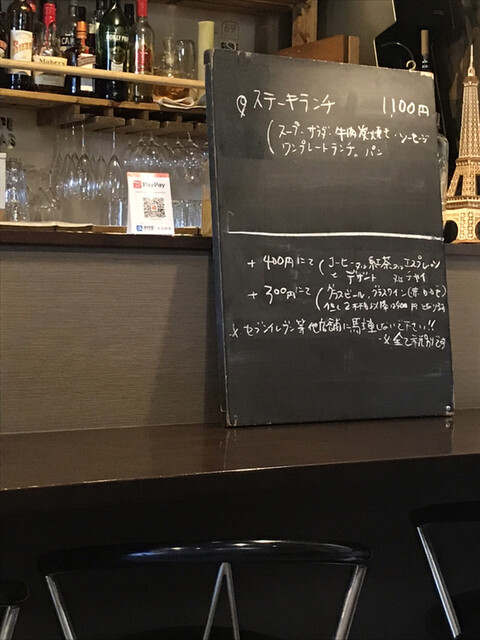 ステーキランチ 1,100円
(スープ・サラダ・牛肉炭焼き・ソーセージ
ワンプレートランチ。パン
+400円にて(コーヒーor紅茶orエスプレッソ
と デザート
+300円にて(グラスビール、グラスワイン(赤 白 ロゼ)
※セブンイレブン等他店舗に駐車しないで下さい!!
※全て税別です
PayPay